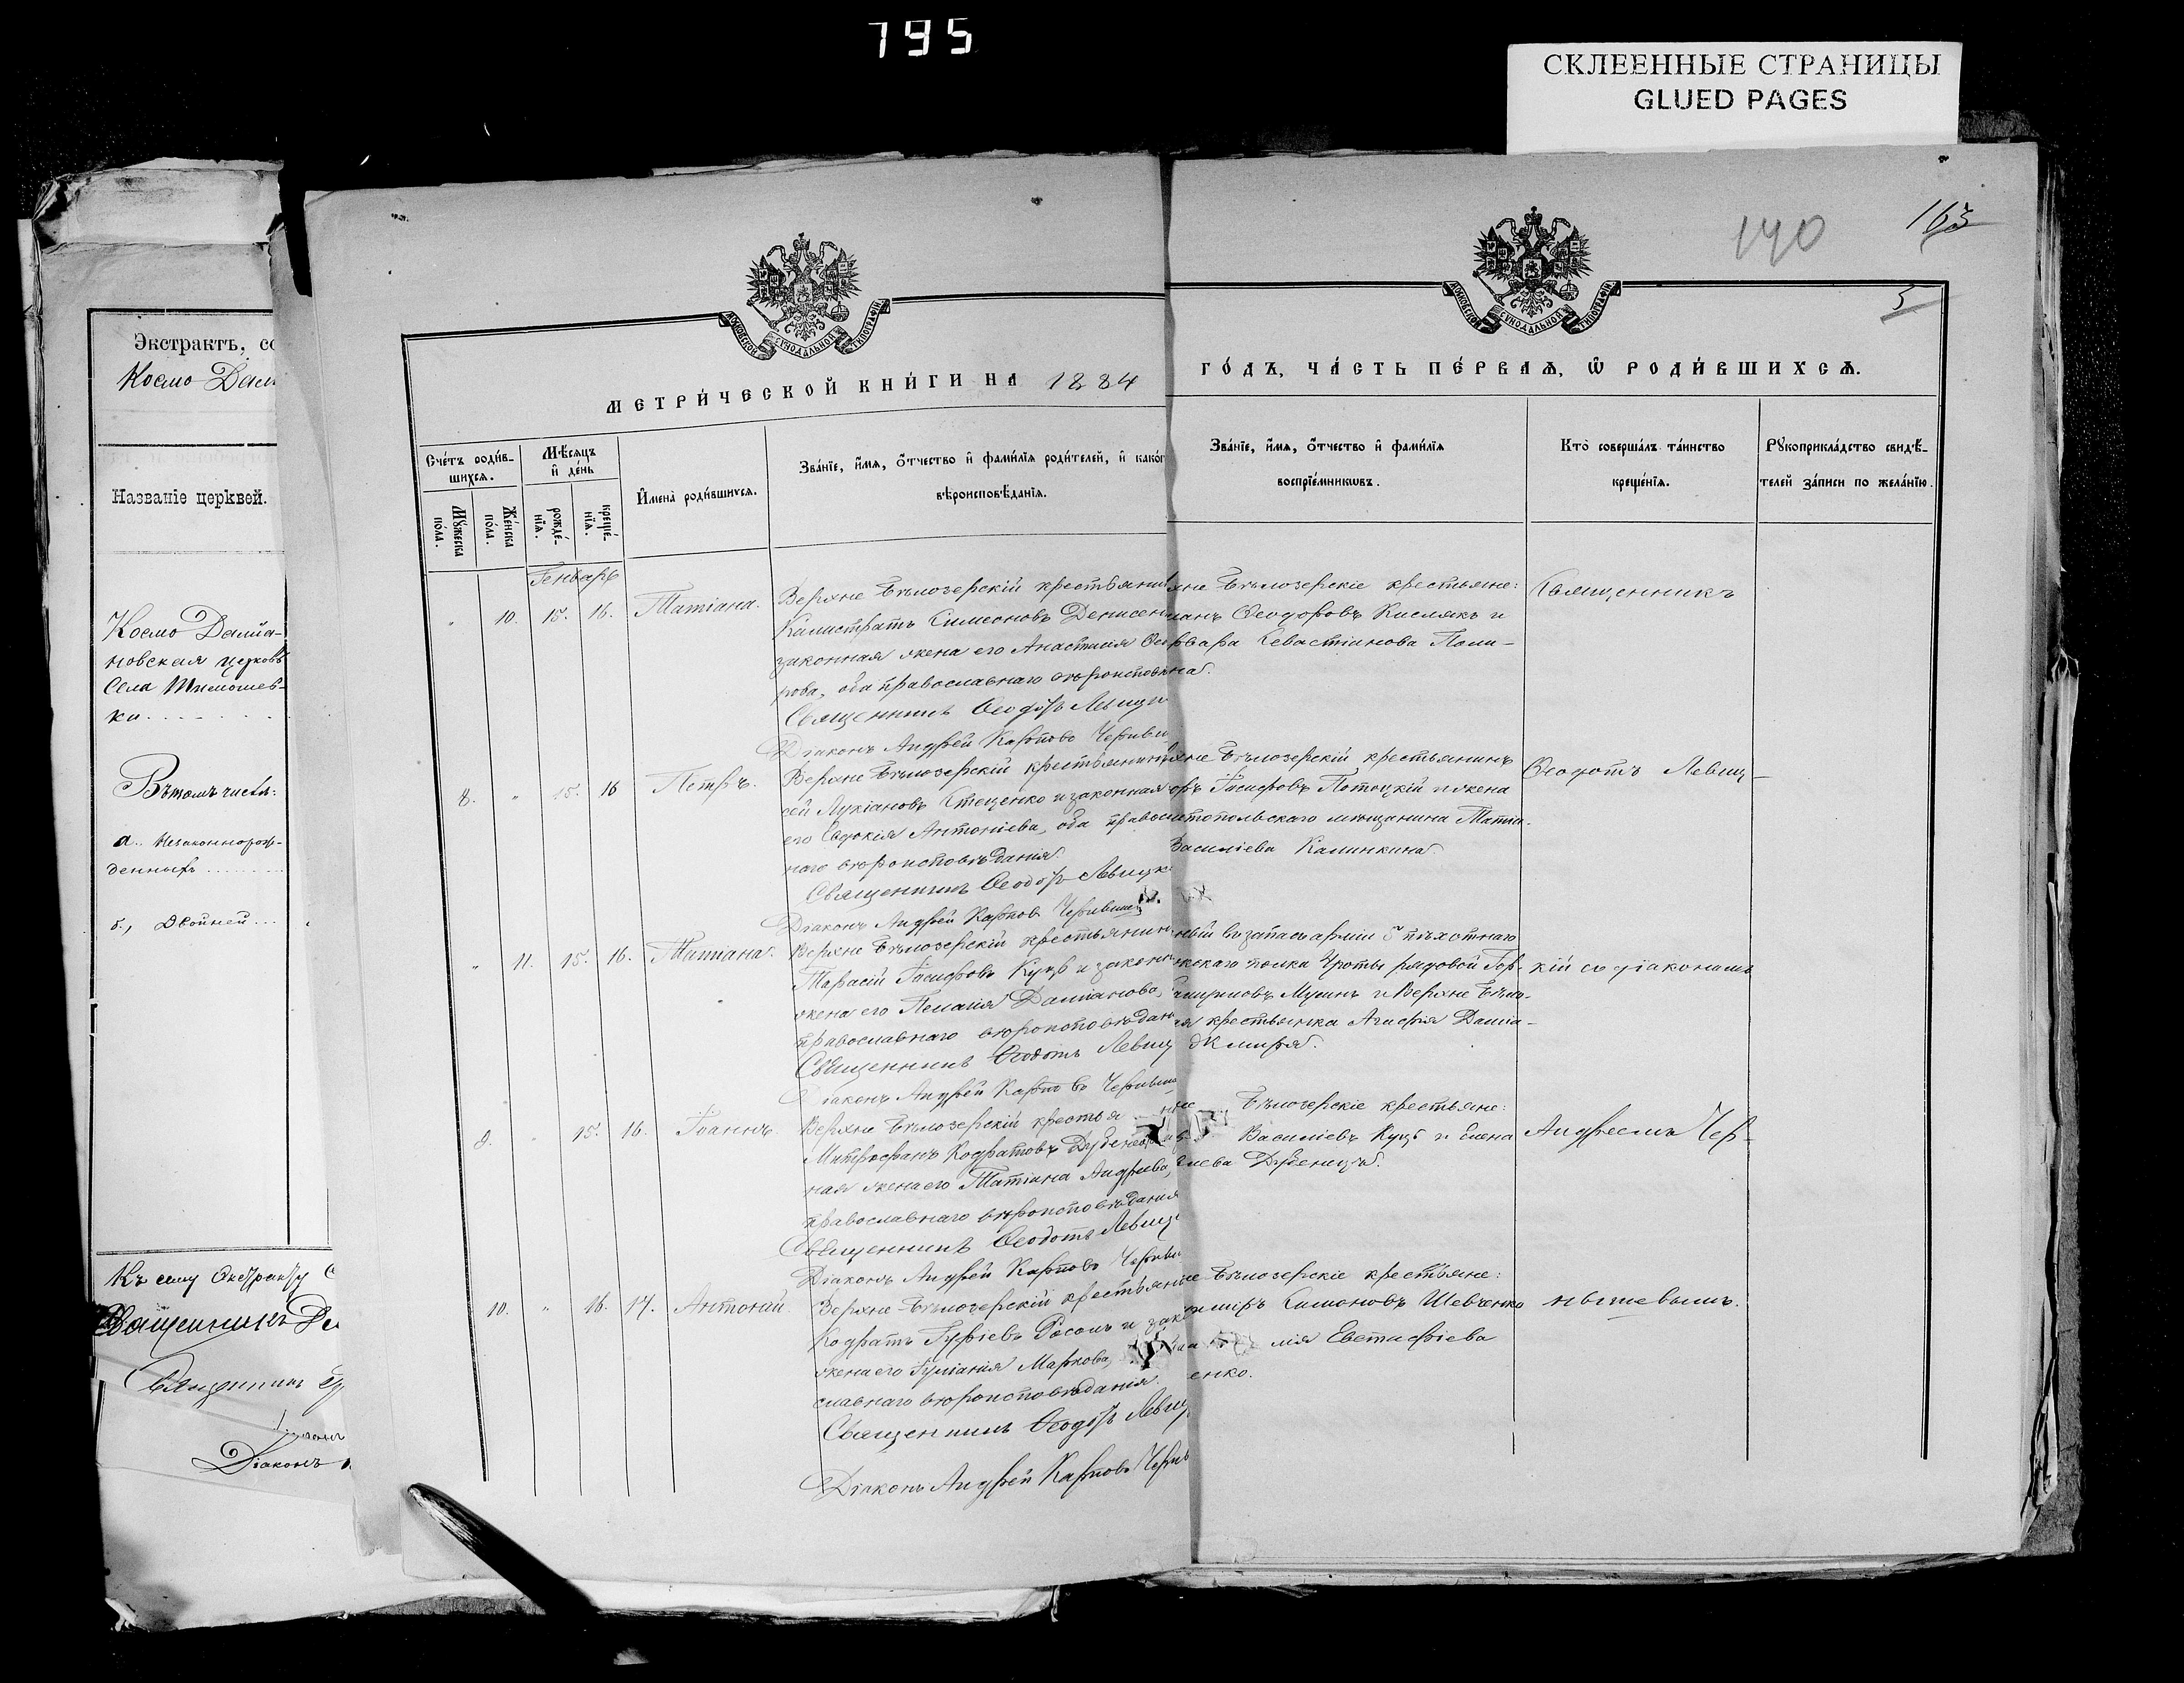 795
СКЛЕЕННЫЕ СТРАНИЦЫ
GLUED PAGES
Экстрактъ, со
Космо Дам
Названіе церквей.
Космо Даміа-
новская церковь
села Тимошев-
ки
Въ томъ числѣ:
а. Незаконнорож-
денныхъ
б., Двойней
Къ сему Экстракту
Священникъ
Священникъ
Діаконъ
140
163
5
МОСКОВСКОЙ СѴНОДАЛЬНОЙ ТИПОГРАФІИ
МОСКОВСКОЙ СѴНОДАЛЬНОЙ ТИПОГРАФІИ
МЕТРИ́ЧЕСКОЙ КНИ́ГИ НА 1884
ГО́ДЪ, ЧА́СТЬ ПЕ́РВАѦ, Ѿ РОДИ́ВШИХСѦ.
Сче́тъ роди́в-
шихсѧ.
Мꙋжеска по́ла.
Же́нска по́ла.
Мѣ́сѧцъ
и҆ де́нь
рожде́-
нїѧ.
креще́-
нїѧ.
И҆мена̀ роди́вшихсѧ.
Зва́нїе, и҆́мѧ, ѻ҆́тчество и҆ фами́лїѧ роди́телей, и҆ како́г
вѣроисповѣ́данїѧ.
Зва́нїе, и҆́мѧ, ѻ҆́тчество и҆ фами́лїѧ
воспрїе́мникѡвъ.
Кто̀ соверша́лъ та́инство
креще́нїѧ.
Рꙋкоприкла́дство свидѣ́-
телей за́писи по жела́нїю.
Генварь
" 10. 15. 16. Татіана.
Верхне Бѣлозерскій крестьянин
Калистратъ Симеоновъ Денисен
законная жена его Анастасія
рова, оба православнаго вѣроисповѣ
Священникъ Ѳеодотъ Левиц
Діаконъ Андрей Карповъ
хне Бѣлозерскіе крестьяне:
манъ Ѳеодоровъ Кислякъ и
рвара Севастіанова
на.
Священникъ
8. " 15. 16 Петръ.
Верхне Бѣлозерскій крестьянинъ
сей Лукіановъ Стеценко и законная
его Евдокія Антоніева, оба право
наго вѣроисповѣданія.
Священникъ Ѳеодотъ Левицк
Діаконъ Андрей Карповъ
хне Бѣлозерскій крестьянинъ
оръ Іосифовъ Потоцкій и жена
итопольскаго мѣщанина
Василіева Калинкина
Ѳеодотъ Левиц-
" 11. 15. 16. Татіана.
Верхне Бѣлозерскій крестьянин
Тарасій Іосифовъ Куцъ и законн
жена его Пелагія Даміанова,
православнаго вѣроисповѣдан
Священникъ Ѳеодотъ Левиц
Діаконъ Андрей Карповъ
ный въ запасъ арміи 5 пѣхотнаго
полка роты рядовой
и Верхне Бѣло-
ая крестьянка Агафія Даміа-
кій съ діакономъ
9. " 15. 16. Іоаннъ
Верхне Бѣлозерскій крестья
Митрофанъ Кодратовъ
ная жена его Татіана Андреева,
православнаго вѣроисповѣданія
Священникъ Ѳеодотъ Левиц
Діаконъ Андрей Карповъ
Бѣлозерскіе крестьяне:
Василіевъ Куцъ и Елена
Дубеница.
Андреемъ Чер-
10. " 16. 17. Антоній
Верхне-Бѣлозерскій крестьянин
Кодратъ Гуріевъ и зак
жена его Іуліанія Маркова,
славнаго вѣроисповѣданія.
Священникъ Ѳеодотъ Левиц
Діаконъ Андрей Карповъ
е Бѣлозерскіе крестьяне:
Симоновъ Шевченко
мія Евстафіева
енко.
нышевымъ.